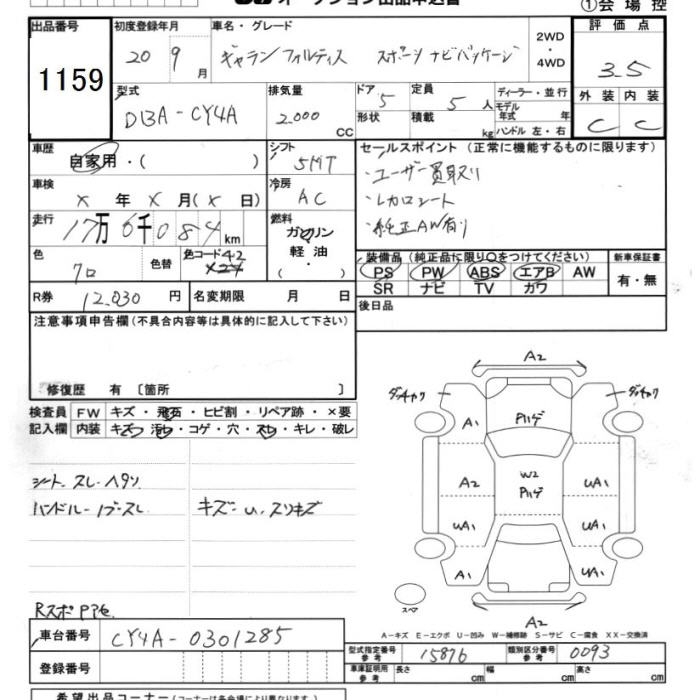 ①会場控
出品番号 初度登録年月 車名・グレード 2WD ・ 4WD 評価点
1159 20 9月 ギャラン フォルティス スポーツ ナビパッケージ 3.5
型式 DBA-CY4A 排気量 2.000 CC ドア 5 形状 定員 5人 積載 kg ディーラー・並行 モデル年式 年 ハンドル 左・右 外装 内装
C C
車歴 自家用・( ) シフト 5MT セールスポイント(正常に機能するものに限ります)
・ユーザー買取り
車検 X年X月(X日) 冷房 AC ・レカロシート
走行 17万6千084km 燃料 ガソリン 軽油 ・( ) ・純正AW有り
色 クロ 色替 色コード 42 X24 装備品(純正品に限り○をつけてください) 新車保証書
PS PW ABS エアB AW 有・無
SR ナビ TV カワ
R券 12.030円 名変期限 月 日 後日品
注意事項申告欄(不具合内容等は具体的に記入して下さい)
修復歴 有〔箇所 〕
検査員 FW キズ・飛石・ヒビ割・リペア跡・×要
記入欄 内装 キズ・汚れ・コゲ・穴・スレ・キレ・破レ
シート スレ ヘタリ
ハンドル-ノブスレ キズ-U、スリキズ
A2
A1
W2
A2 UA1
UA1 UA1
A1 A1
スペア
A2
A-キズ E-エクボ U-凹み W-補修跡 S-サビ C-腐食 XX-交換済
車台番号 CY4A-0301285
型式指定番号 参考 15876 類別区分番号 参考 0093
登録番号 車庫証明用 参考 長さ cm 幅 cm 高さ cm
希望出品コーナー(コーナーは各会場により異なります)